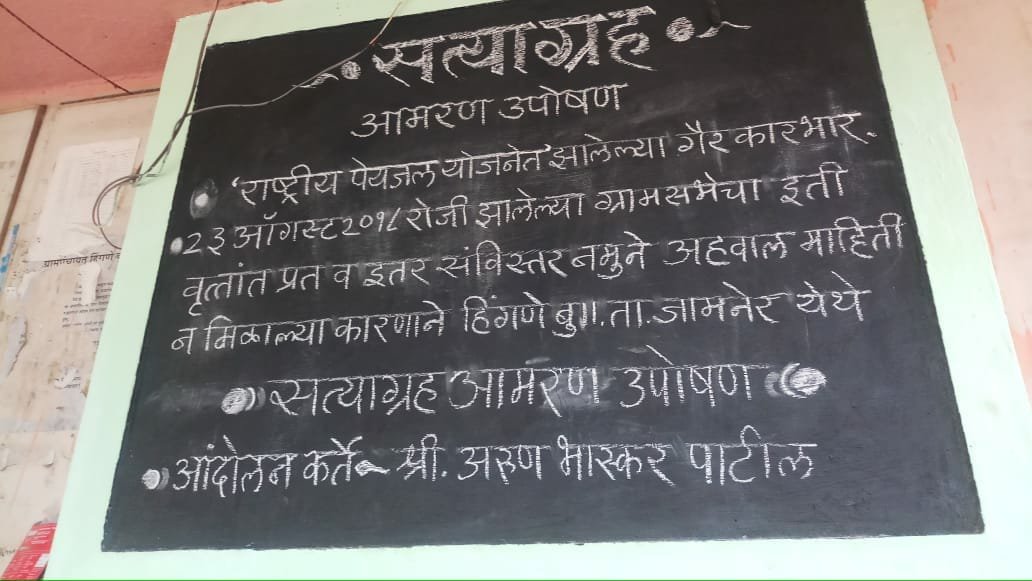 सत्याग्रह
आमरण उपोषण
'राष्ट्रीय पेयजल योजनेत' झालेल्या गैर कारभार.
२३ ऑगस्ट २०१८ रोजी झालेल्या ग्रामसभेचा इती
वृत्तांत प्रत व इतर संविस्तर नमुने अहवाल माहिती
न मिळाल्या कारणाने हिंगणे बु॥.ता.जामनेर येथे
सत्याग्रह आमरण उपोषण
आंदोलन कर्ते - श्री. अरुण भास्कर पाटील
ग्रामपंचायत हिंगणे